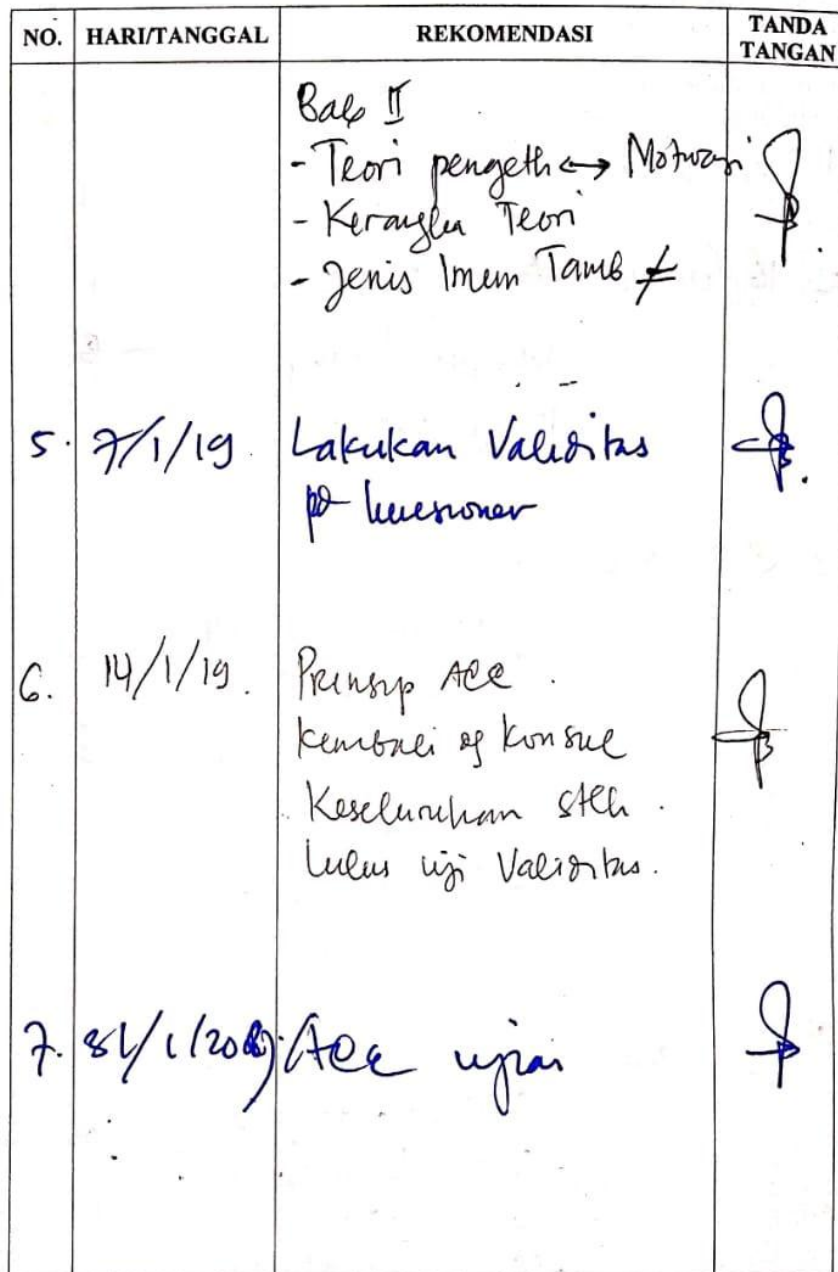 NO. HARI/TANGGAL REKOMENDASI TANDA TANGAN
Bab II
- Teori pengeth ↔ Motivasi
- Kerangka Teori
- Jenis Imun Tamb ≠
5. 7/1/19. Lakukan Validitas
pd kuesioner
6. 14/1/19. Prinsip Acc.
Kembali Konsul
Keseluruhan stlh.
lulus uji Validitas.
7. 31/1/2019. Acc ujian